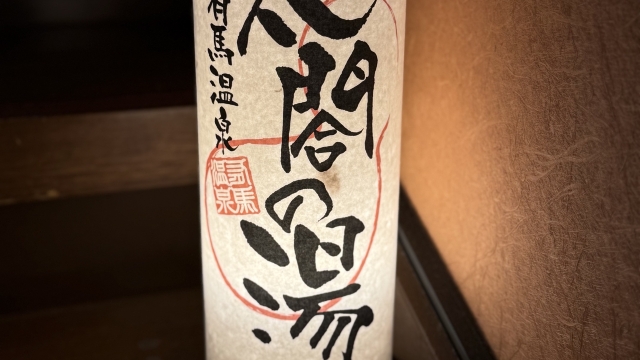 太閤の湯
有馬温泉
有馬
温泉